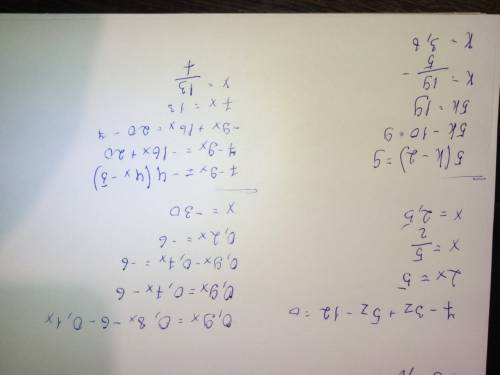 7 - 3z + 5z - 12 = 0
2x = 5
x = 5/2
x = 2,5
5(k - 2) = 9
5k - 10 = 9
5k = 19
k = 19/5
k = 3,8
0,9x = 0,8x - 6 - 0,1x
0,9x = 0,7x - 6
0,9x - 0,7x = -6
0,2x = -6
x = -30
7 - 9x = -4(4x - 5)
7 - 9x = -16x + 20
-9x + 16x = 20 - 7
7x = 13
x = 13/7